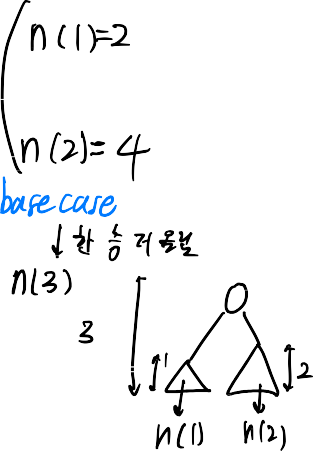 n(1)=2
n(2)=4
base case
↓ 한 층 더 올릴
n(3)
3
1
2
n(1) n(2)